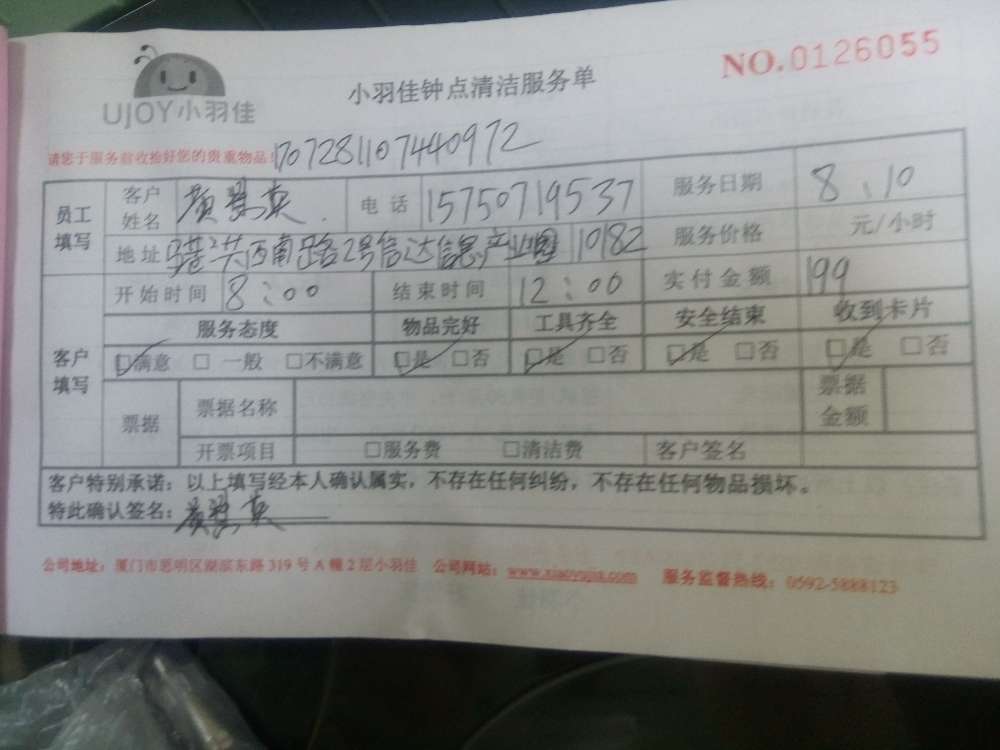 UJOY小羽佳
小羽佳钟点清洁服务单
NO.0126055
请您于服务前收拾好您的贵重物品!
170728110744097２
员工填写
客户姓名
颜翠英
电话
15750719537
服务日期
8、10
地址
西南路2号信达信息产业园 10182
服务价格
元/小时
开始时间
8:00
结束时间
12:00
实付金额
199
客户填写
服务态度
物品完好
工具齐全
安全结束
收到卡片
☑满意 □一般 □不满意
☑是 □否
☑是 □否
☑是 □否
☑是 □否
票据
票据名称
票据金额
开票项目
□服务费 □清洁费
客户签名
客户特别承诺:以上填写经本人确认属实,不存在任何纠纷,不存在任何物品损坏。
特此确认签名:颜翠英
公司地址:厦门市思明区湖滨东路319号A幢2层小羽佳 公司网站:www.xiaoyujia.com 服务监督热线:0592-5888123